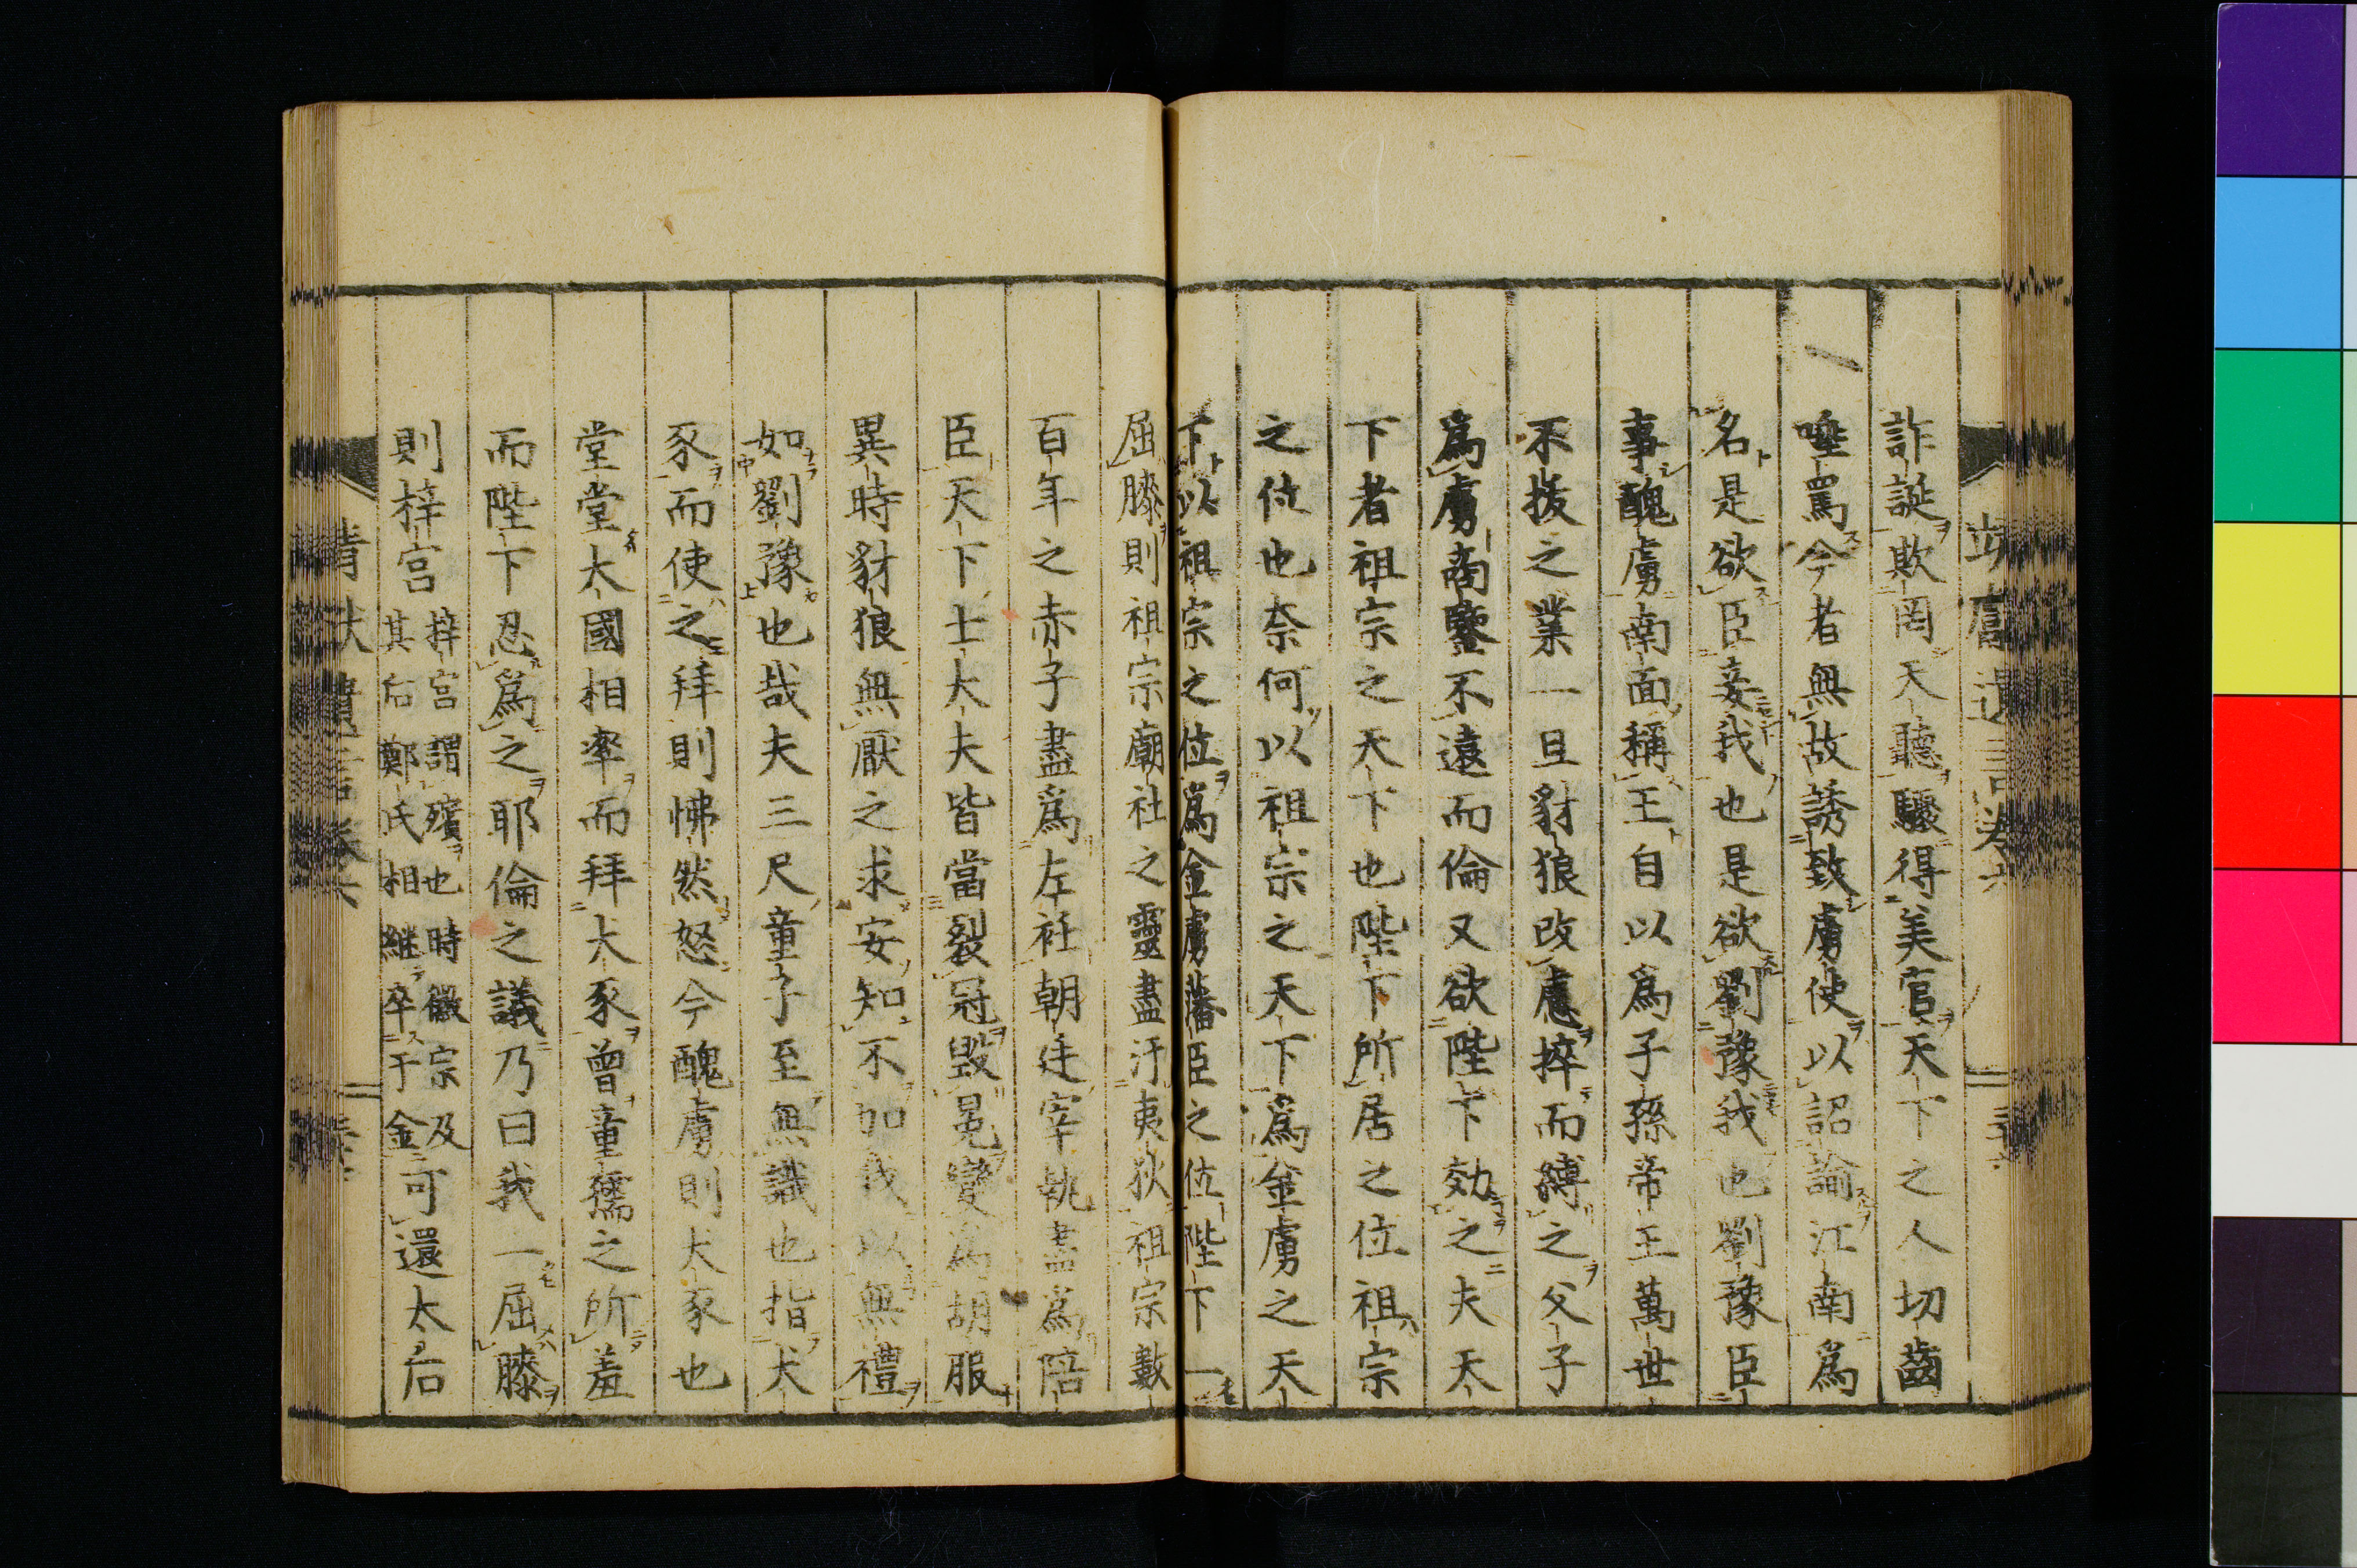 詐誕欺罔天聽驟得美官天下之人切齒
唾罵今者無故誘致虜使以詔諭江南爲
名是欲臣妾我也是欲劉豫我也劉豫臣
事醜虜南面稱王自以爲子孫帝王萬世
不拔之業一旦豺狼改慮捽而縛之父子
爲虜商鑒不遠而倫又欲陛下効之夫天
下者祖宗之天下也陛下所居之位祖宗
之位也奈何以祖宗之天下爲金虜之天
下以祖宗之位爲金虜藩臣之位陛下一
屈膝則祖宗廟社之靈盡汙夷狄祖宗數
百年之赤子盡爲左衽朝廷宰執盡爲陪
臣天下士大夫皆當裂冠毀冕變爲胡服
異時豺狼無厭之求安知不加我以無禮
如劉豫也哉夫三尺童子至無識也指犬
豕而使之拜則怫然怒今醜虜則犬豕也
堂堂大國相率而拜犬豕曾童孺之所羞
而陛下忍爲之耶倫之議乃曰我一屈膝
則梓宮梓宮謂殯也時徽宗及其后鄭氏相繼卒于金可還太后